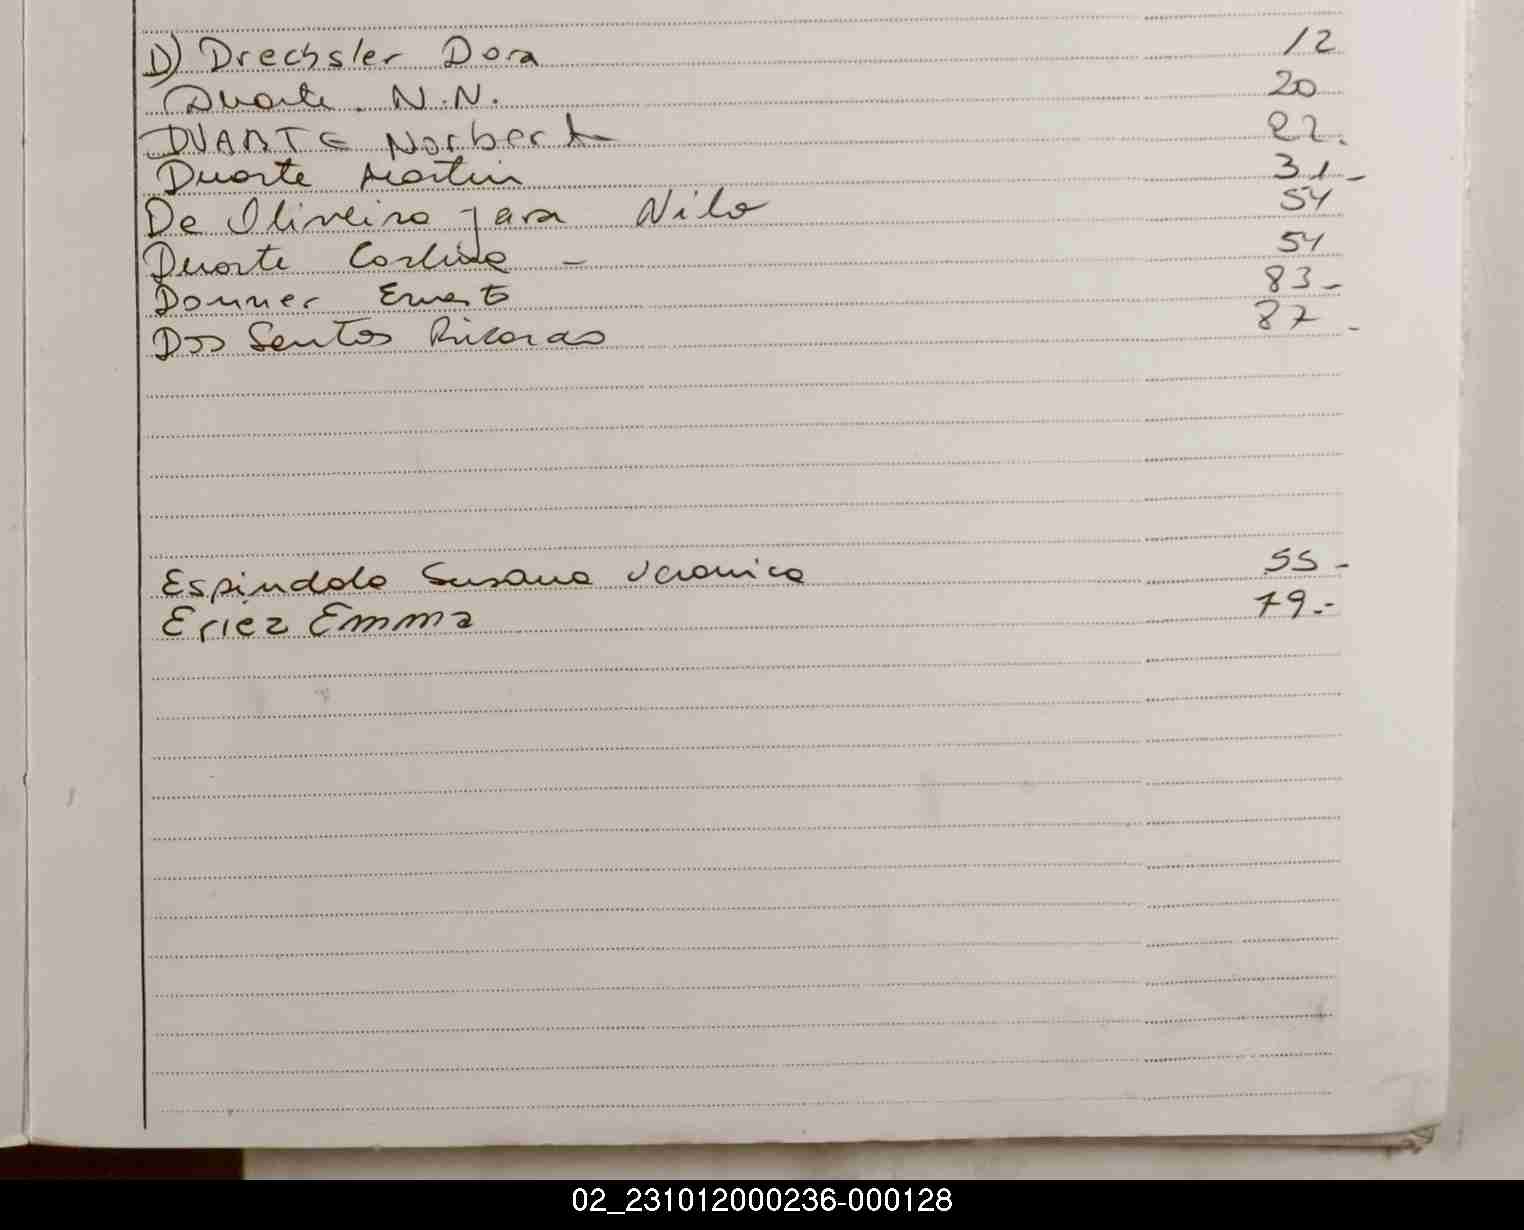 D) Drechsler Dora 12
Duarte. N.N. 20
DUARTE Norberto 22.
Duarte Martin 31-
De Oliveira Jara Nilo 54
Duarte Carlina - 54
Donner Ernesto 83-
Dos Santos Ricardo 87-
Espindola Susana Veronica 55-
Eriez Emma 79.-
02_231012000236-000128